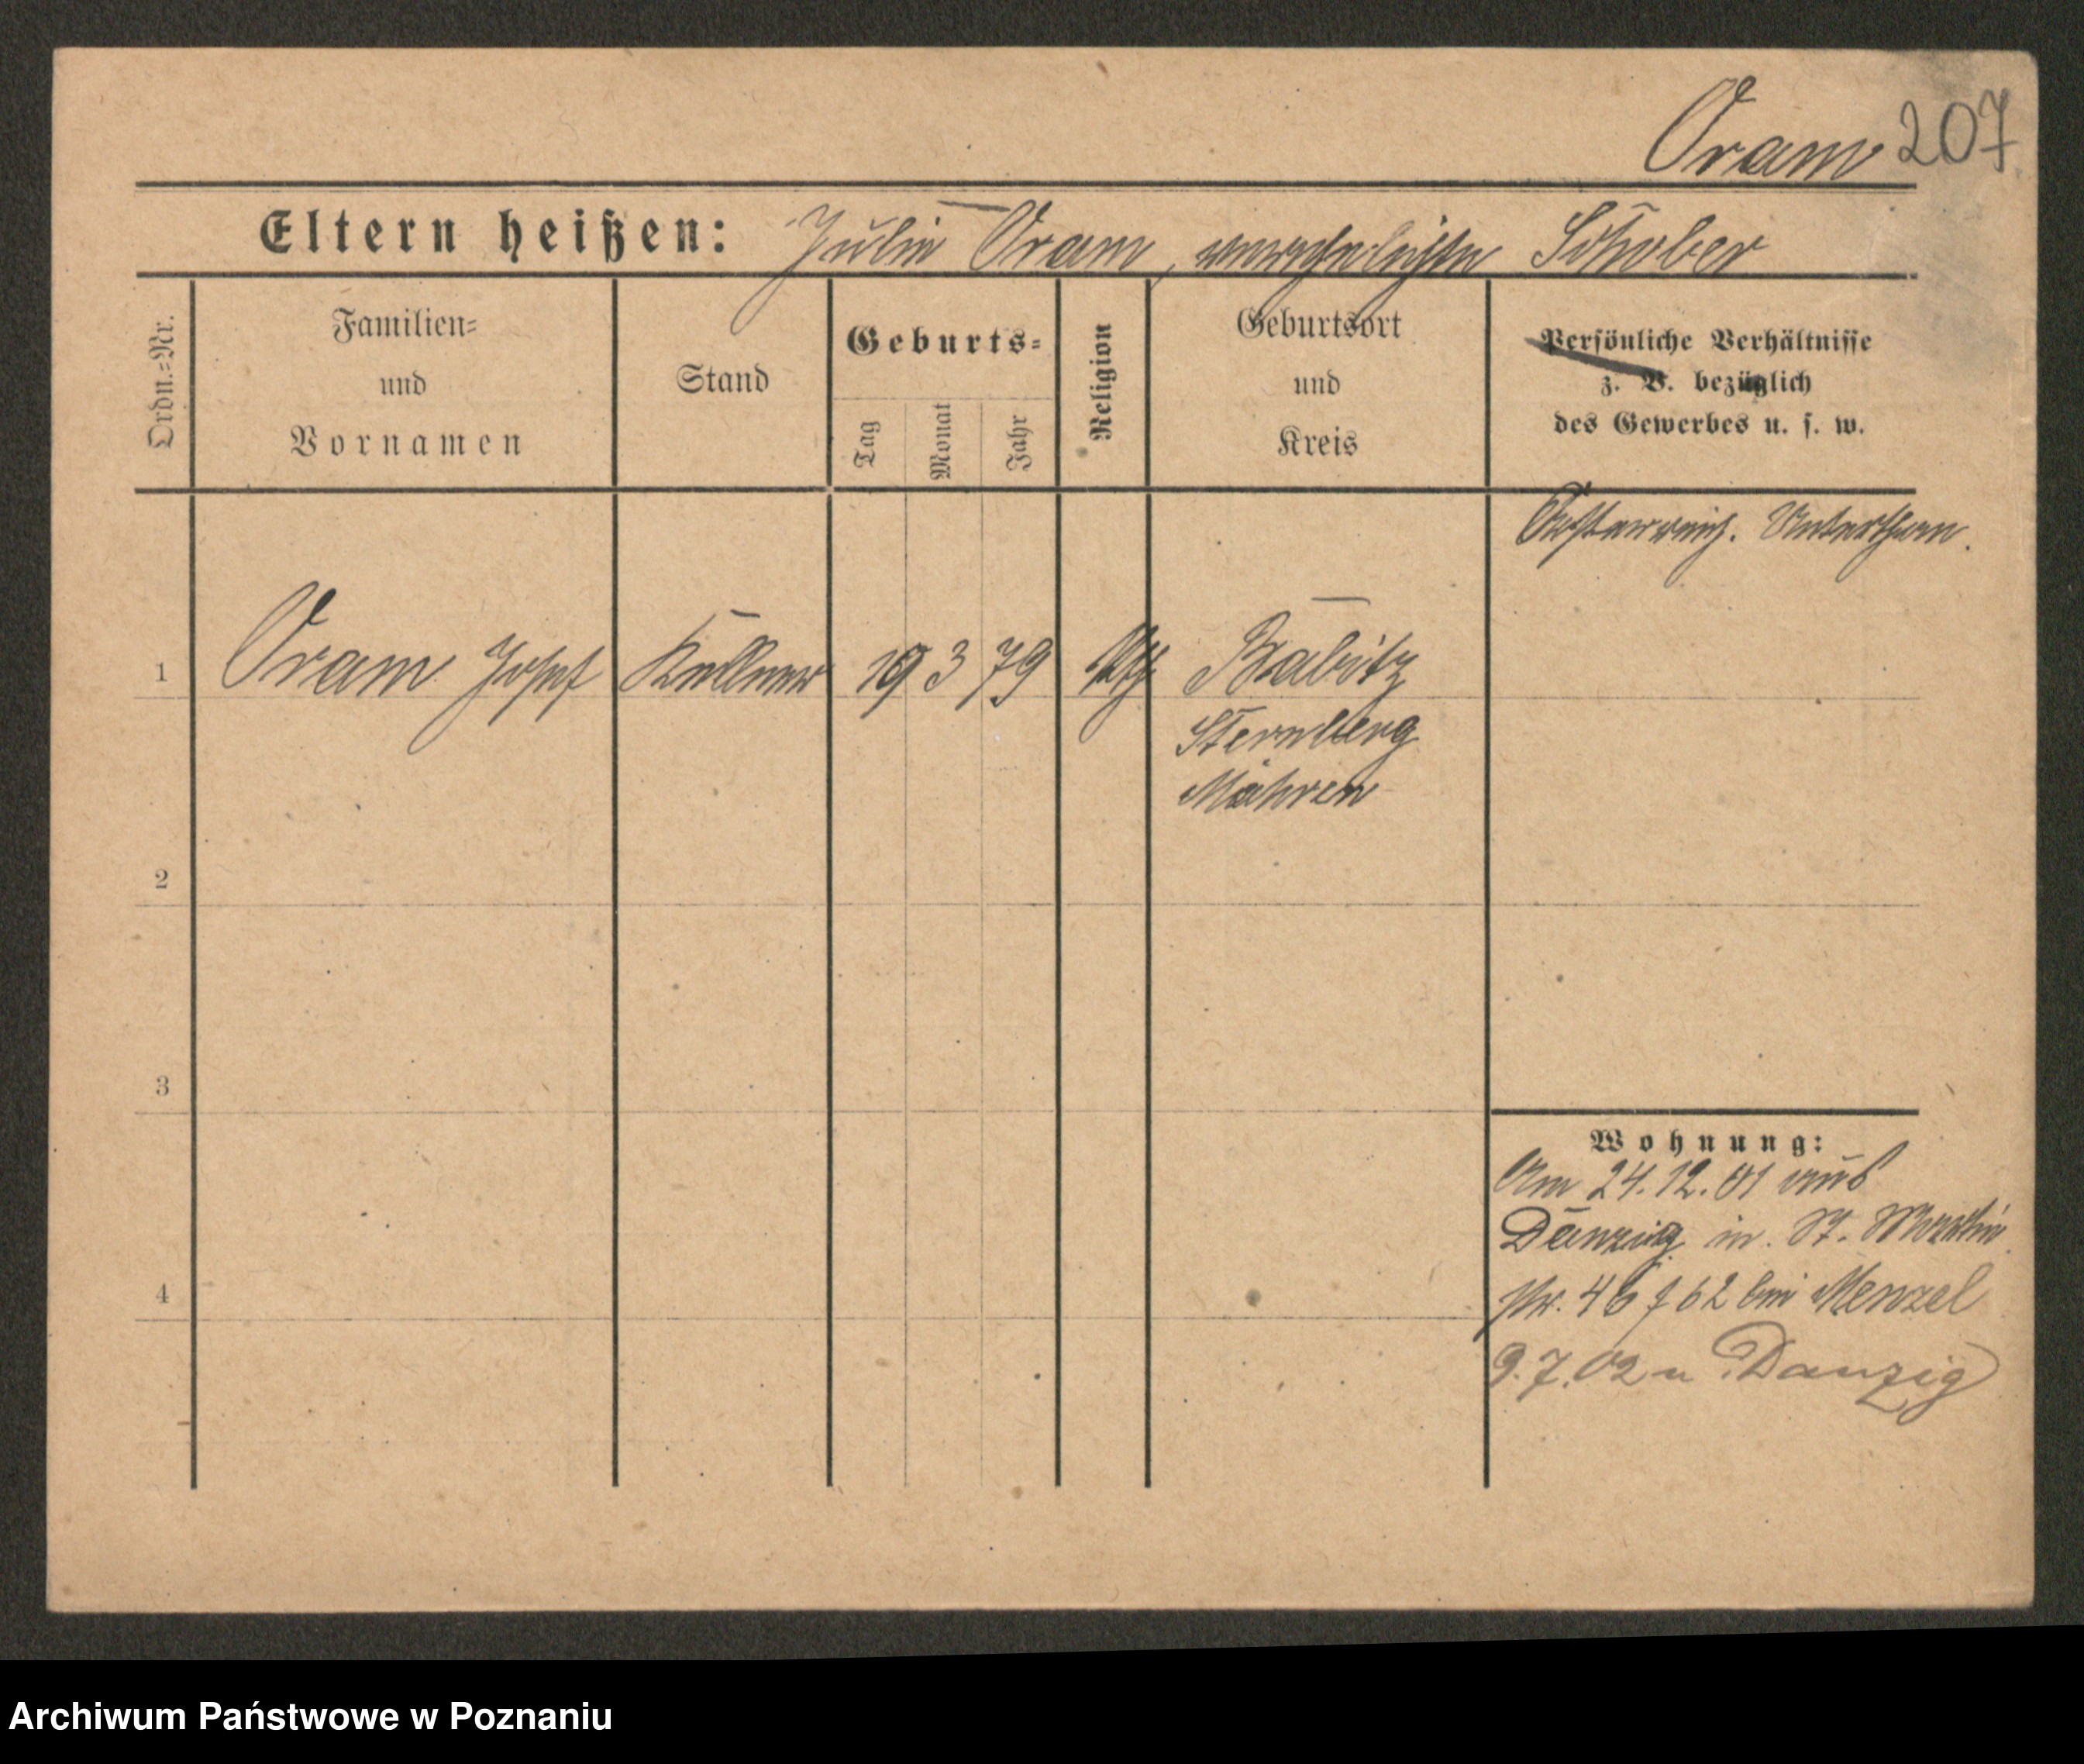 Oram 207
Eltern heißen: Julie Oram, verehelichte Schober
Ordn.-Nr.
Familien-
und
Vornamen
Stand
Geburts-
Tag
Monat
Jahr
Religion
Geburtsort
und
Kreis
Persönliche Verhältnisse
z. B. bezüglich
des Gewerbes u. s. w.
Oesterreich. Unterthan.
1 Oram Josef Kellner 19 3 79 Babitz
Sternberg
Mähren
2
3
4
Wohnung:
Am 24.12.01 aus
Danzig in St. Martin
Nr. 46 bei Menzel
9.7.02 n Danzig
Archiwum Państwowe w Poznaniu